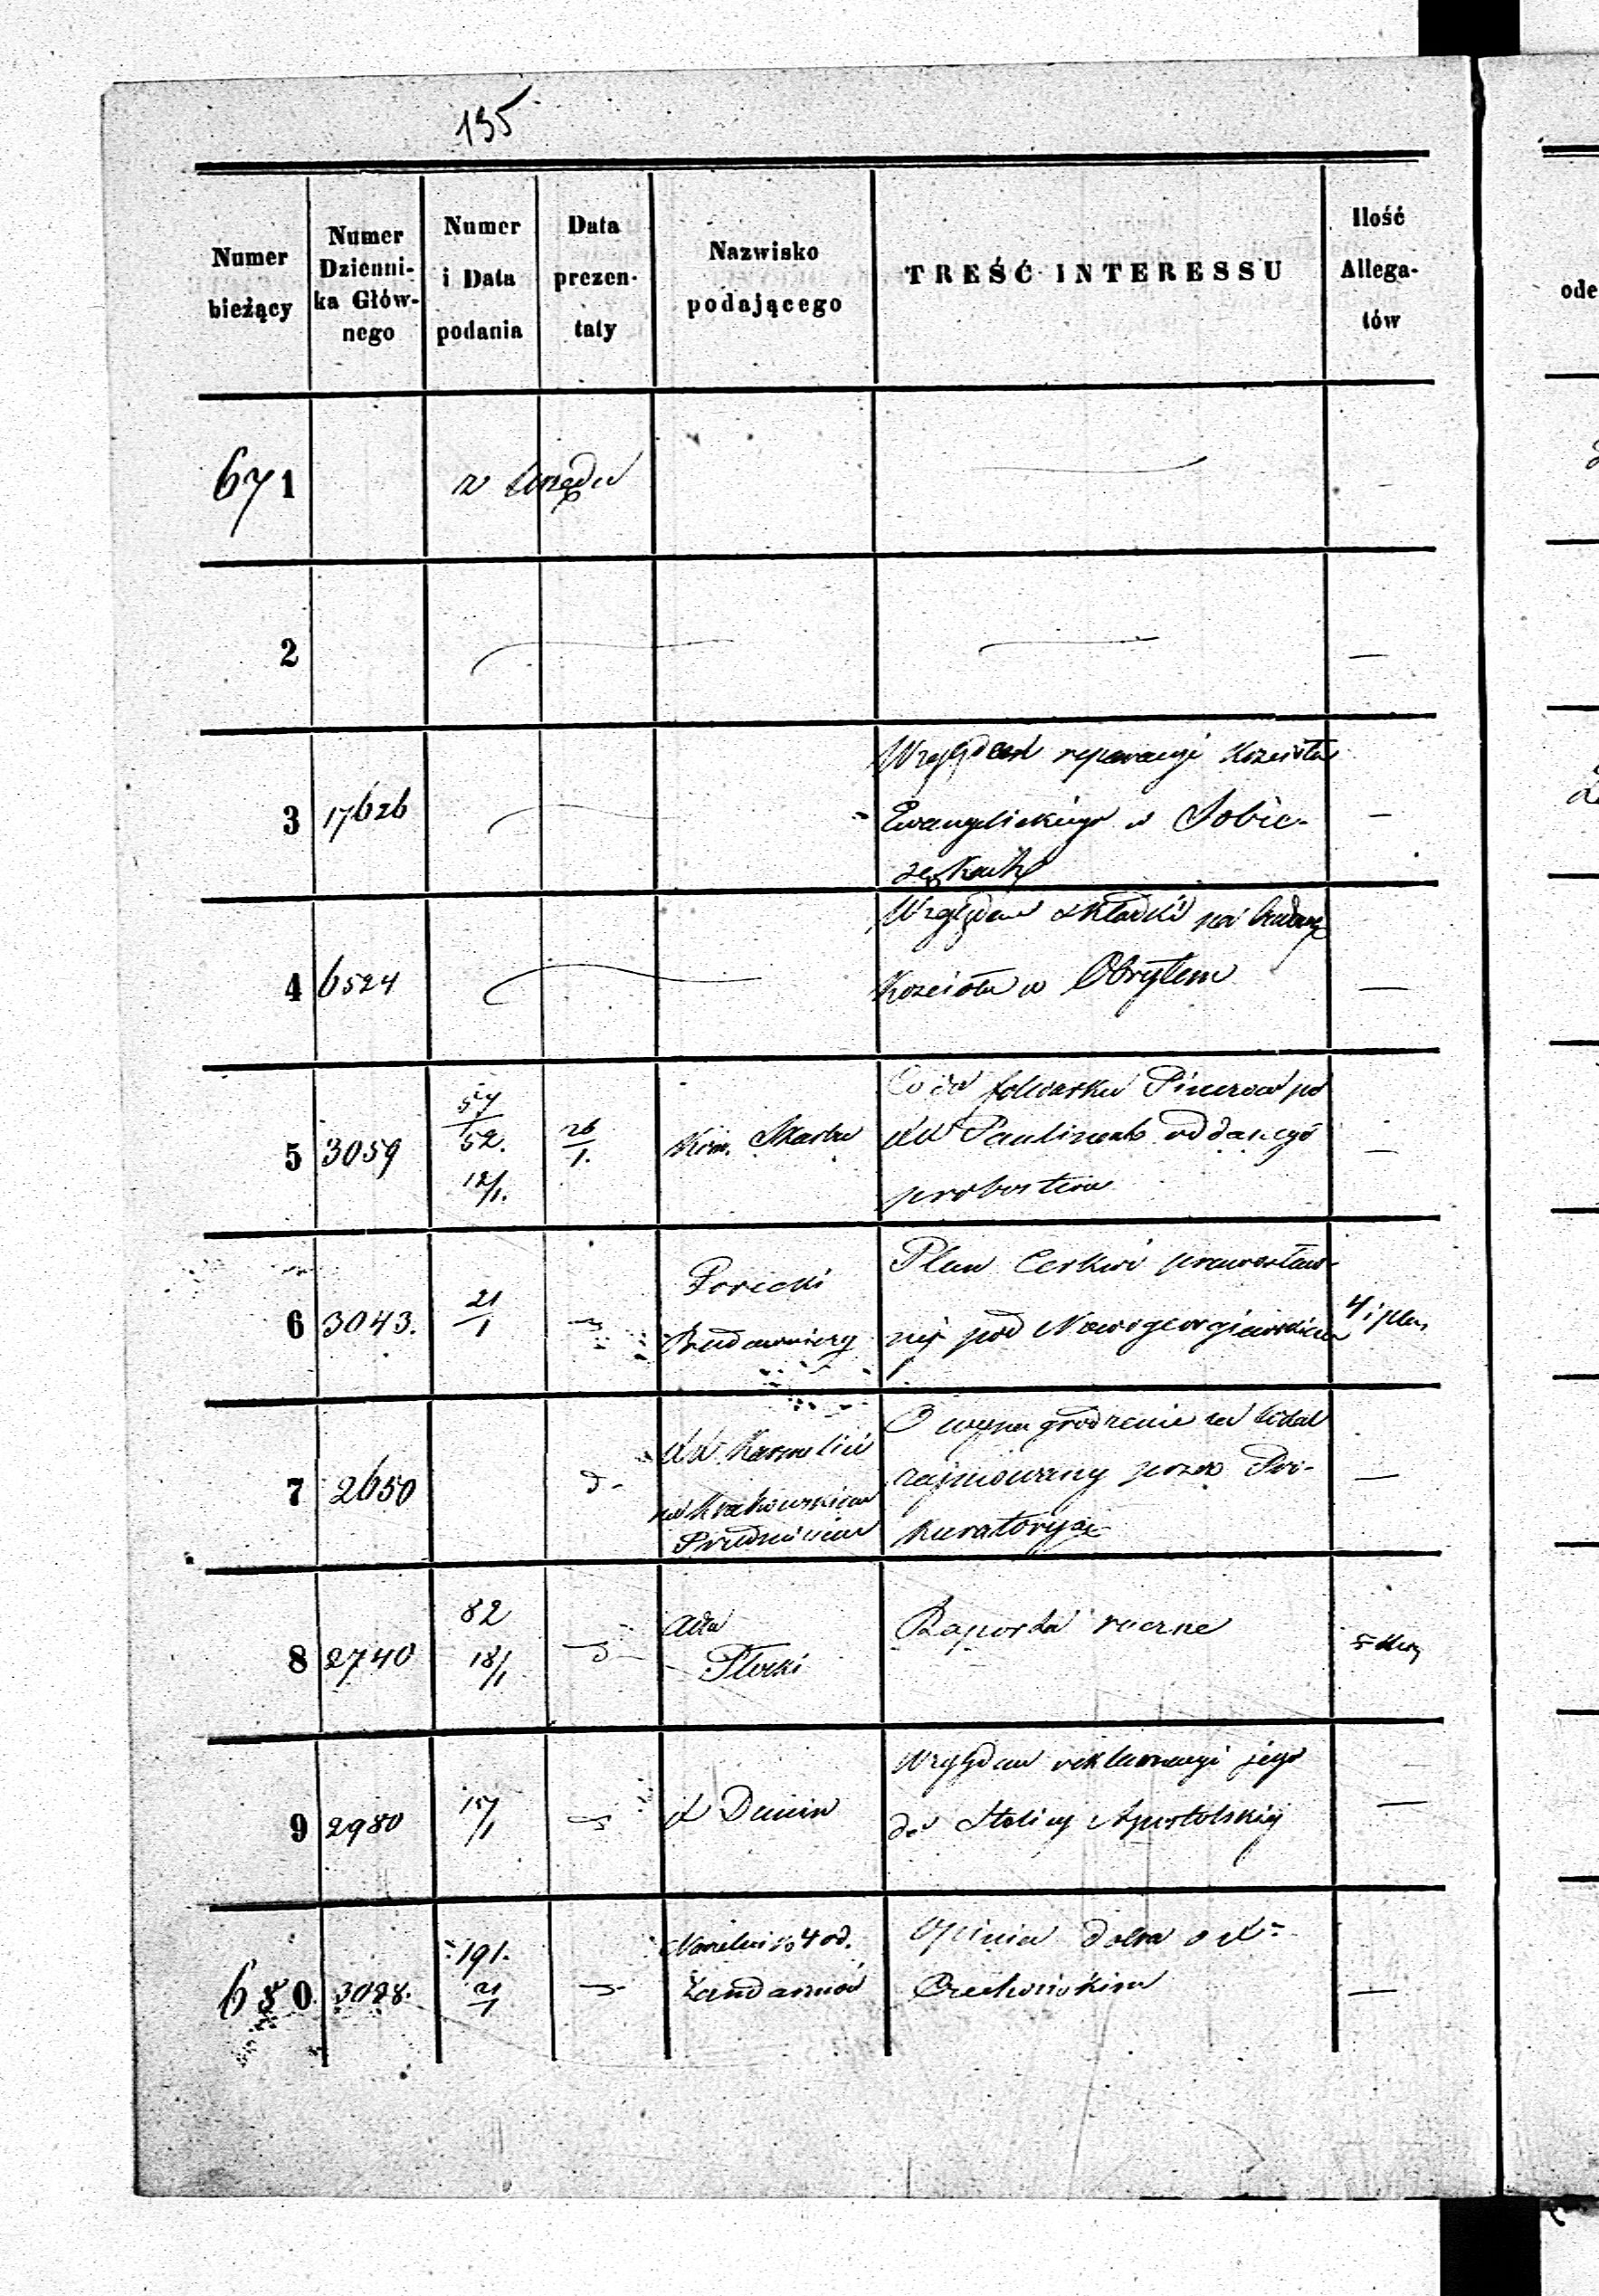 135
Numer bieżący
Numer Dzienni-ka Głów-nego
Numer i Data podania
Data prezen-taty
Nazwisko podającego
TREŚĆ INTERESSU
Ilość Allega-tów
ode
671 z Urzędu
2
3 17626 Względem reparacyi Kościoła
Ewangelickiego w Sobie-
sękach
4 6524 Względem składki na budowę
Kościoła w Obrytem
5 3059 57/52. 12/1. 26/1. Kom. Skarbu
Co do folwarku po
XX Paulinach oddanego
probostwu
6 3043. 21/1 Porecki
Budowniczy
Plan Cerkwi prawosław-
nej pod Nowogeorgiewskiem
4 i plan
7 2650 d- XX Karmelici
na Krakowskiem
Przedmieściu
O wynagrodzenie za lokal
zajmowany przez Pro-
kuratoryę
8 2740 82 18/1 d- Adm
Płocki
Raporta roczne
9 2980 15/1 X Dunin
Względem reklamacyi jego
do Stolicy Apostolskiej
680 3028. 191. 21/1 Naczelnik 4 od.
Żandarmów
Opinia dobra o X.